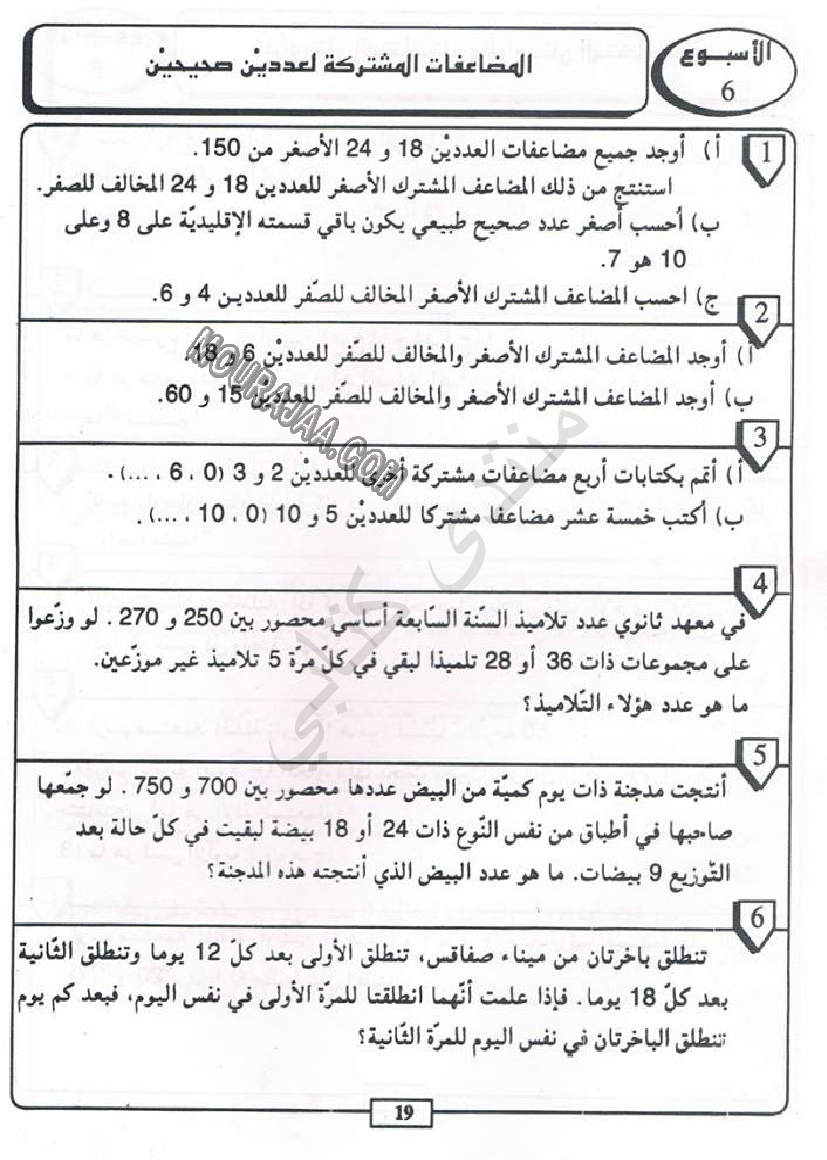 الأسبوع
6
المضاعفات المشتركة لعدديْن صحيحيْن
1
أ) أوجد جميع مضاعفات العدديْن 18 و 24 الأصغر من 150.
استنتج من ذلك المضاعف المشترك الأصغر للعددين 18 و 24 المخالف للصفر.
ب) أُحسب أصغر عدد صحيح طبيعي يكون باقي قسمته الإقليديّة على 8 وعلى
10 هو 7.
ج) احسب المضاعف المشترك الأصغر المخالف للصّفر للعددين 4 و 6.
2
أ) أوجد المضاعف المشترك الأصغر والمخالف للصّفر للعدديْن 6 و 18
ب) أوجد المضاعف المشترك الأصغر والمخالف للصّفر للعدديْن 15 و 60.
3
أ) أتمم بكتابات أربع مضاعفات مشتركة أخرى للعدديْن 2 و 3 (0 ، 6 ، ...) .
ب) أكتب خمسة عشر مضاعفا مشتركا للعدديْن 5 و 10 (0 ، 10 ، ...) .
4
في معهد ثانوي عدد تلاميذ السنّة السّابعة أساسي محصور بين 250 و 270 . لو وزّعوا
على مجموعات ذات 36 أو 28 تلميذا لبقي في كلّ مرّة 5 تلاميذ غير موزّعين.
ما هو عدد هؤلاء التّلاميذ؟
5
أنتجت مدجنة ذات يوم كميّة من البيض عددها محصور بين 700 و 750 . لو جمّعها
صاحبها في أطباق من نفس النّوع ذات 24 أو 18 بيضة لبقيت في كلّ حالة بعد
التّوزيع 9 بيضات. ما هو عدد البيض الذي أنتجته هذه المدجنة؟
6
تنطلق باخرتان من ميناء صفاقس، تنطلق الأولى بعد كلّ 12 يوما وتنطلق الثّانية
بعد كلّ 18 يوما. فإذا علمت أنّهما انطلقتا للمرّة الأولى في نفس اليوم، فبعد كم يوم
تنطلق الباخرتان في نفس اليوم للمرّة الثّانية؟
19
MOURAJAA.COM
منتدى كتابي